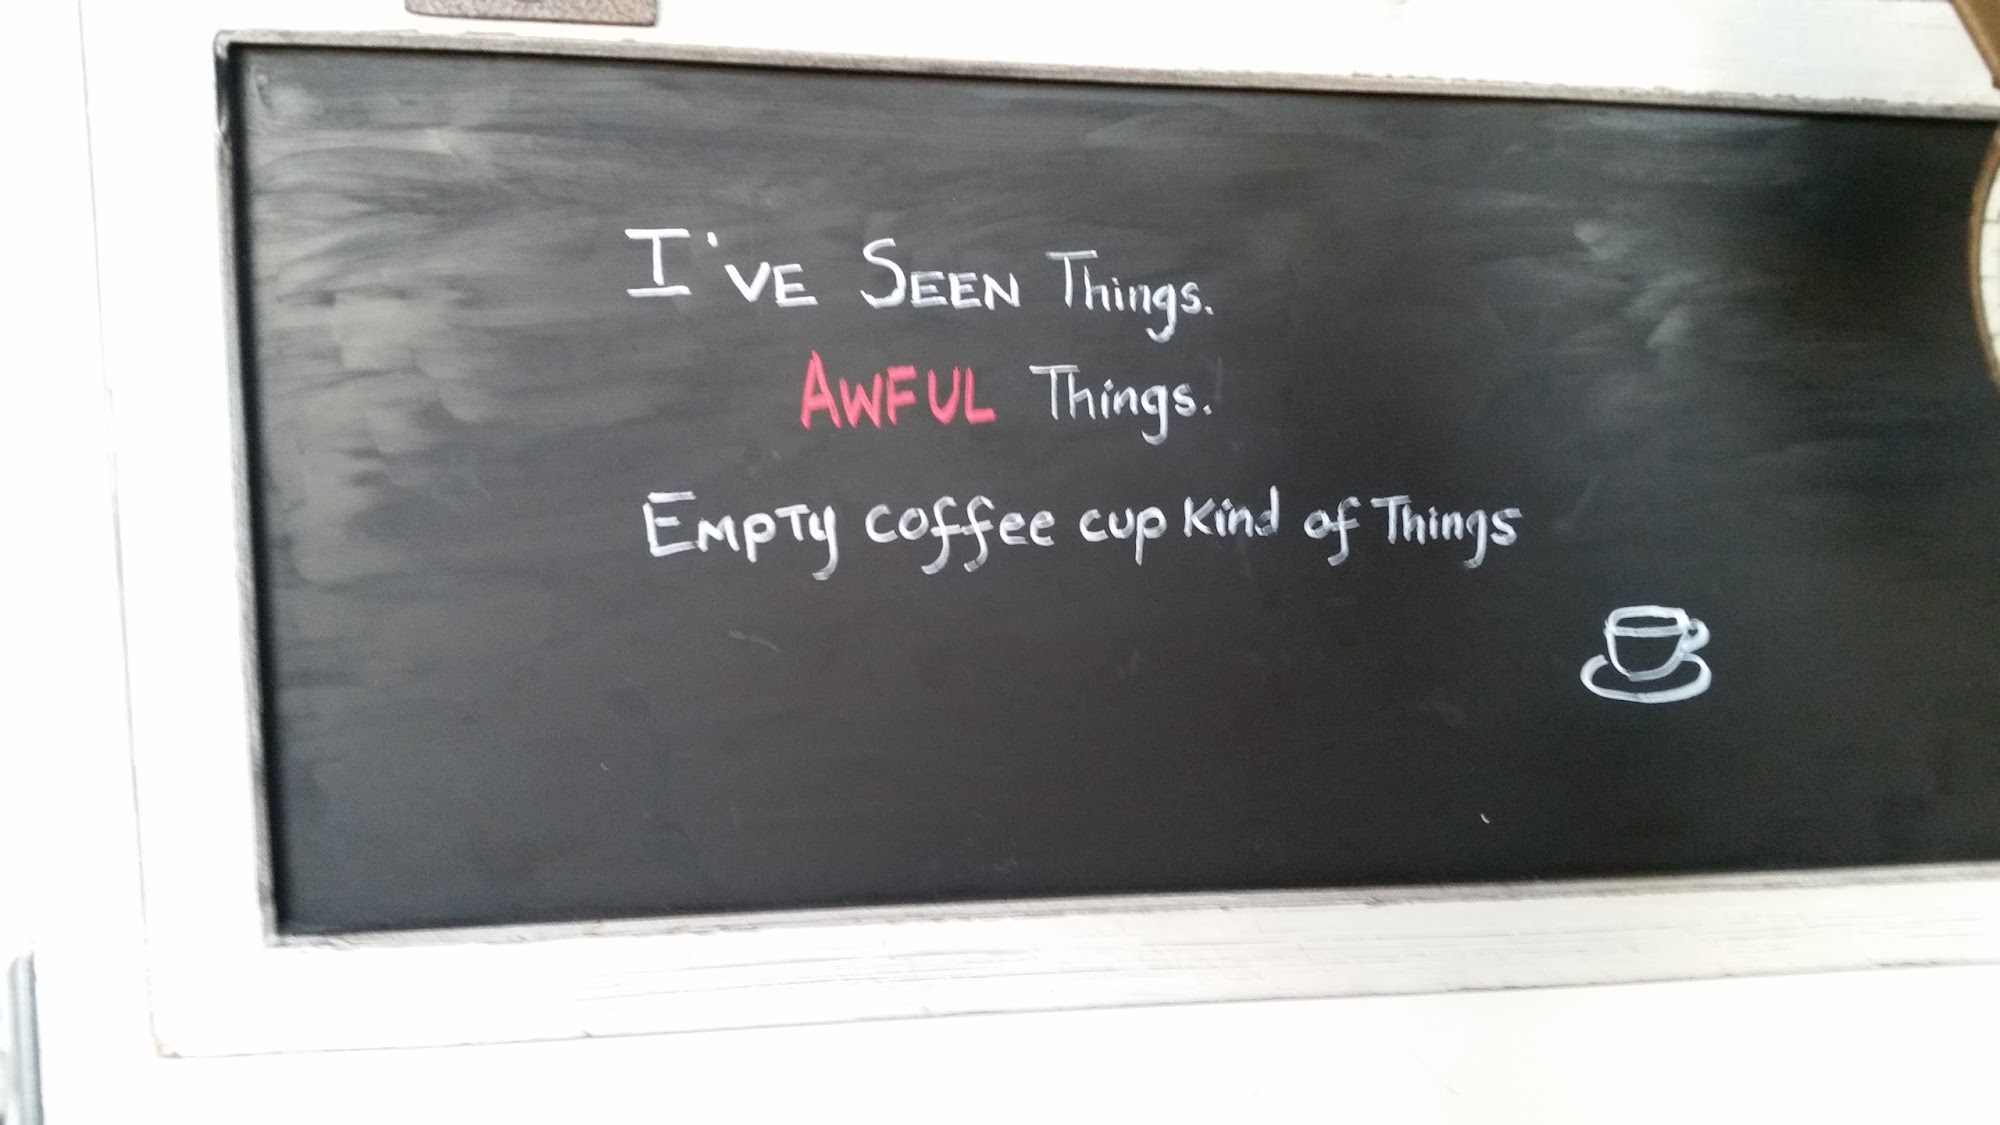 I'VE SEEN Things.
AWFUL Things.
EMPTY coffee cup Kind of Things